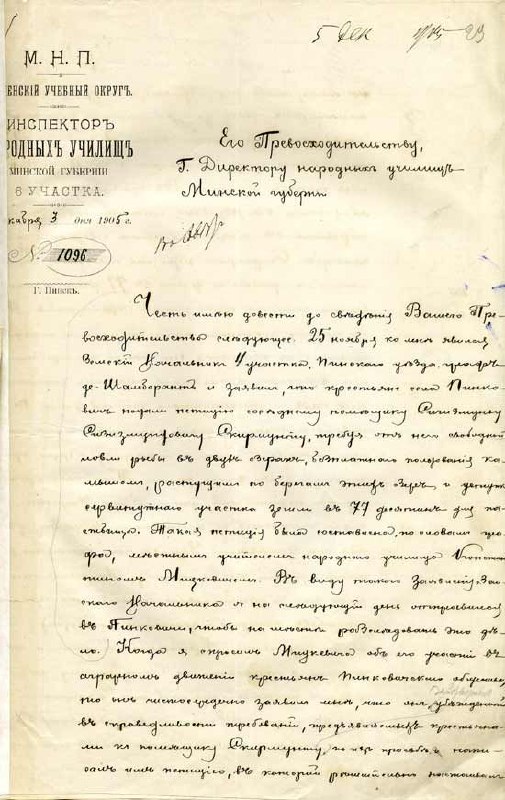 5 Дек
М. Н. П.
ЕНСКІЙ УЧЕБНЫЙ ОКРУГЪ.
ИНСПЕКТОРЪ
РОДНЫХЪ УЧИЛИЩЪ
МИНСКОЙ ГУБЕРНІИ
6 УЧАСТКА.
кабря 3 дня 1905 г.
№ 1096
Г. Пинскъ.
Его Превосходительству,
Г. Директору народныхъ училищъ
Минской губерніи
Честь имѣю довести до свѣдѣнія Вашего Пре-
восходительства слѣдующее. 25 ноября ко мнѣ явился
Земскій Начальникъ 4 участка, Пинскаго уѣзда, графъ
де-Шамборантъ и заявилъ, что крестьяне села Пинко-
вичъ подали петицію сосѣднему помѣщику Сигизмунду
Сигизмундовичу Скирмунту, требуя отъ него свободной
ловли рыбы въ двухъ озерахъ, безплатнаго пользованія ка-
мышомъ, растущимъ по берегамъ этихъ озеръ, и уступки
сервитутнаго участка земли въ 77 десятинъ для па-
стбища. Такая петиція была составлена, по словамъ гра-
фа, мѣстнымъ учителемъ народнаго училища
Мицкевичемъ. Въ виду такого заявленія Зем-
скаго Начальника я на слѣдующій день отправился
въ Пинковичи, чтобы на мѣстѣ разслѣдовать это дѣ-
ло. Когда я спросилъ Мицкевича объ его участіи въ
аграрномъ движеніи крестьянъ Пинковичскаго общества,
то онъ чистосердечно заявилъ мнѣ, что онъ, убѣжденный
въ справедливости требованій, предъявляемыхъ крестьяна-
ми къ помѣщику Скирмунту, по ихъ просьбѣ напи-
салъ имъ петицію, въ которой рѣшительно настаивалъ